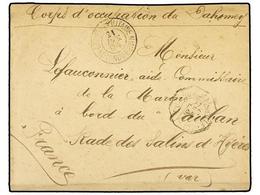 Corps d'occupation du Dahomey
Monsieur
Lefauconnier, aide Commissaire
de la Marine
à bord du Vauban
Rade des Salins d'Hyères
France
(Var)